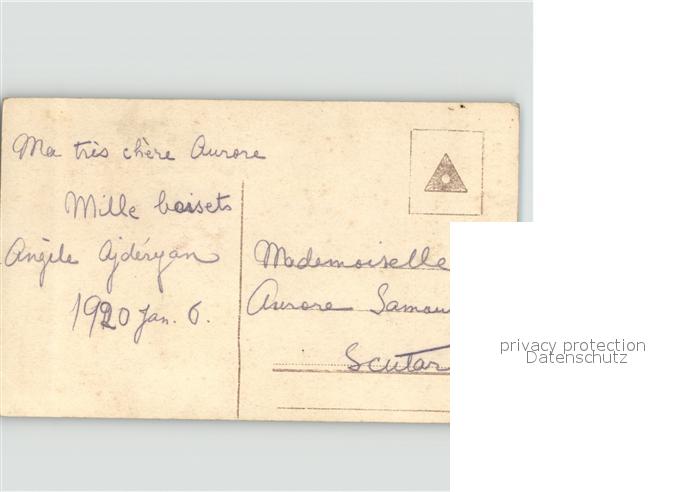 Ma très chère Aurore
Mille baisets
Angèle Ajdéryan
1920 Jan. 6.
Mademoiselle
Aurore Samou
Scutar
privacy protection
Datenschutz